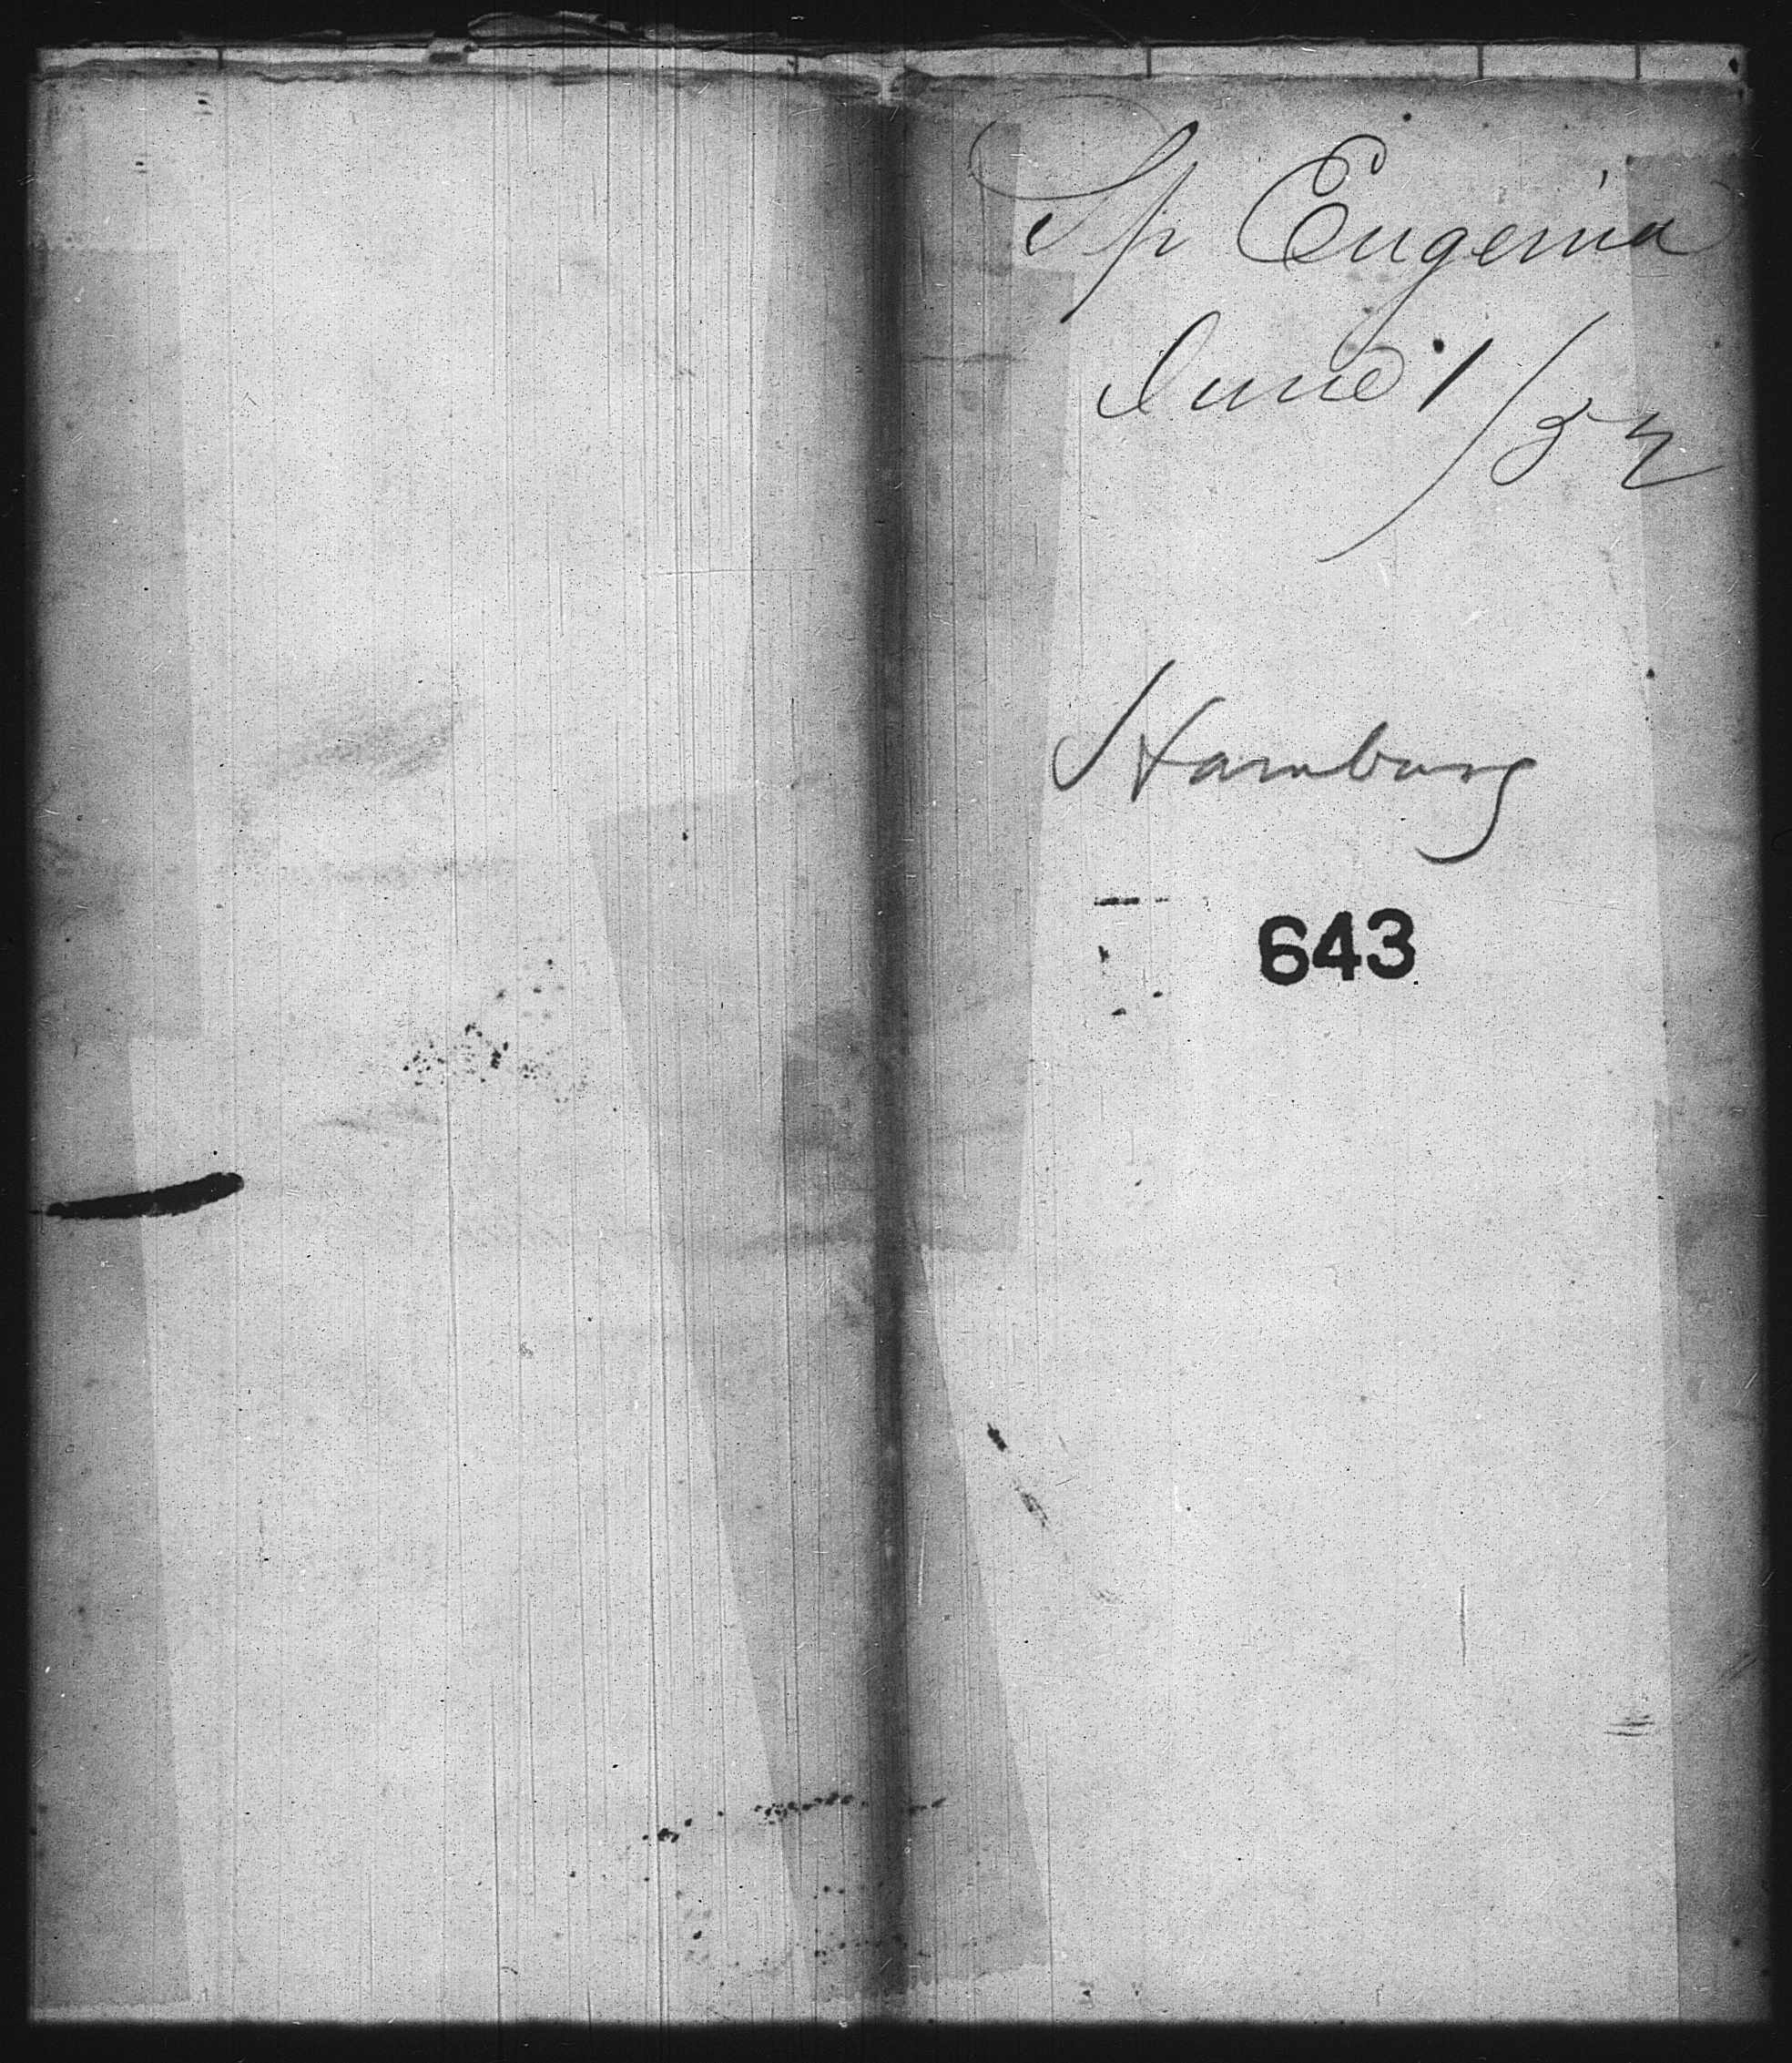 Sp Eugenia
June 1/52
Hamburg
643